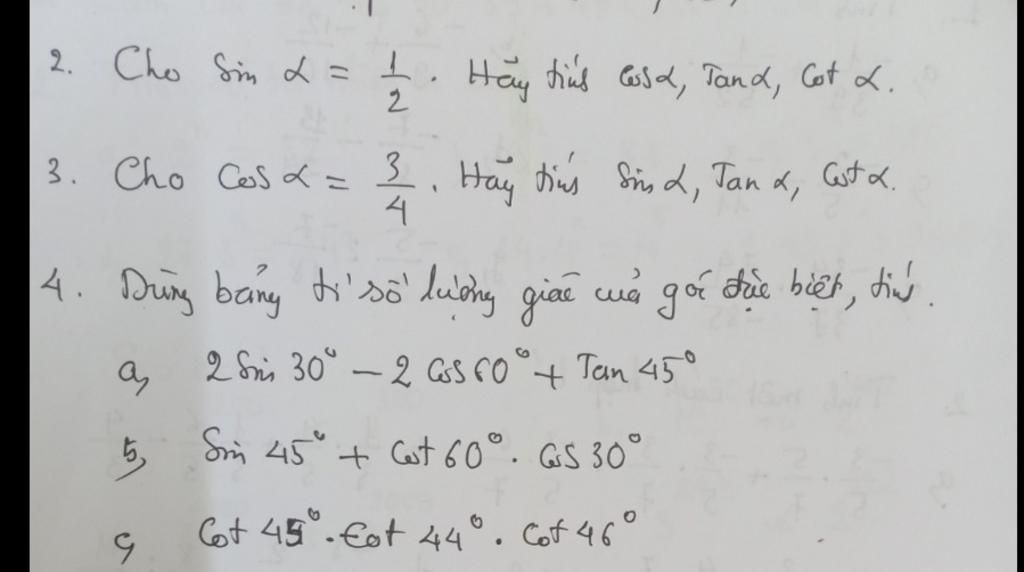 2. Cho Sin α = 1/2. Hãy tính Cosα, Tanα, Cot α.
3. Cho Cos α = 3/4. Hãy tính Sin α, Tan α, Cot α.
4. Dùng bảng tỉ số lượng giác của góc đặc biệt, tính.
a, 2 Sin 30° - 2 Cos 60° + Tan 45°
b, Sin 45° + Cot 60° . Cos 30°
c, Cot 45° . Cot 44° . Cot 46°